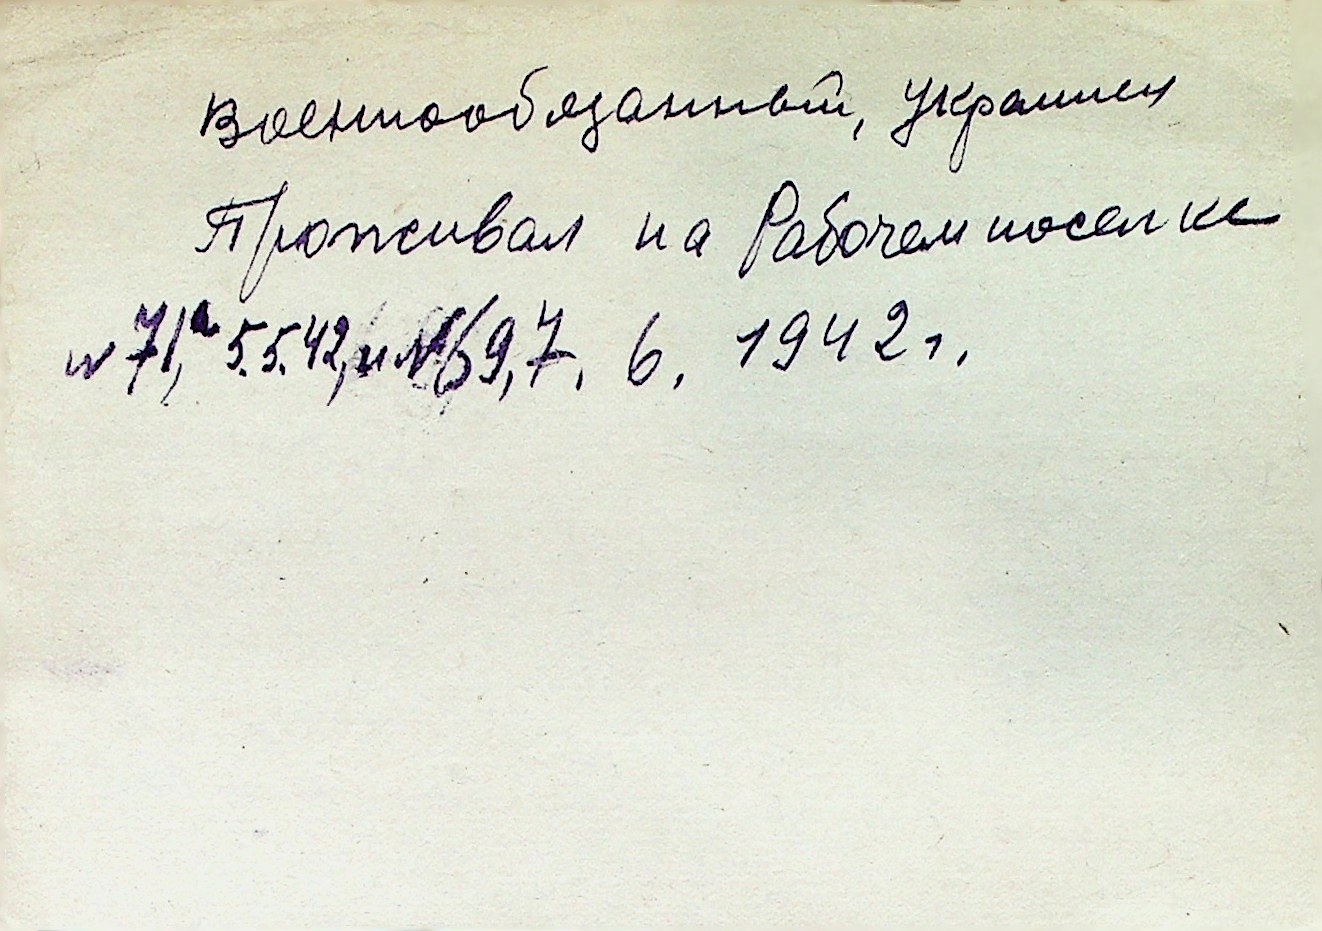 Военнообязанный, украинец
Проживал на Рабочем поселке
№ 71,а 5.5.42, и №69, 7. 6. 1942 г.